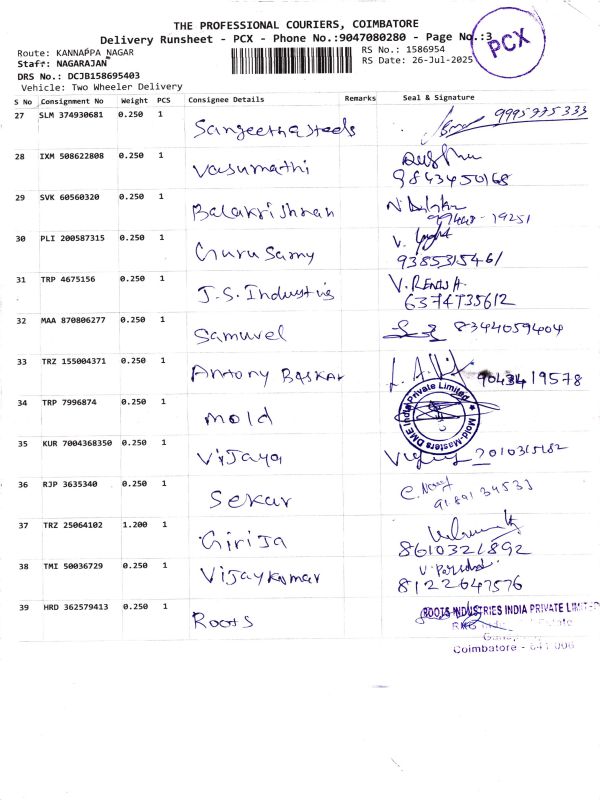 THE PROFESSIONAL COURIERS, COIMBATORE
Delivery Runsheet - PCX - Phone No.:9047080280 - Page No.:3
PCX
Route: KANNAPPA NAGAR
RS No.: 1586954
Staff: NAGARAJAN
RS Date: 26-Jul-2025
DRS No.: DCJB158695403
Vehicle: Two Wheeler Delivery
S No Consignment No Weight PCS Consignee Details Remarks Seal & Signature
27 SLM 374930681 0.250 1 Sangeetha steels 9995775333
28 IXM 508622808 0.250 1 Vasumathi
9843450168
29 SVK 60560320 0.250 1 Balakrishnan
99448-19251
30 PLI 200587315 0.250 1 Gurusamy V.
9385315461
31 TRP 4675156 0.250 1 J.S. Industris V.
6374735612
32 MAA 870806277 0.250 1 Samuvel 8344059404
33 TRZ 155004371 0.250 1 Antony Baskar 9043419578
34 TRP 7996874 0.250 1 mold Mold-Masters DME India Private Limited
35 KUR 7004368350 0.250 1 Vijaya
36 RJP 3635340 0.250 1 Sekar
9189134533
37 TRZ 25064102 1.200 1 Girija
8610321892
38 TMI 50036729 0.250 1 Vijaykumar
8122647576
39 HRD 362579413 0.250 1 Roots ROOTS INDUSTRIES INDIA PRIVATE LIMITED
Coimbatore - 641 006